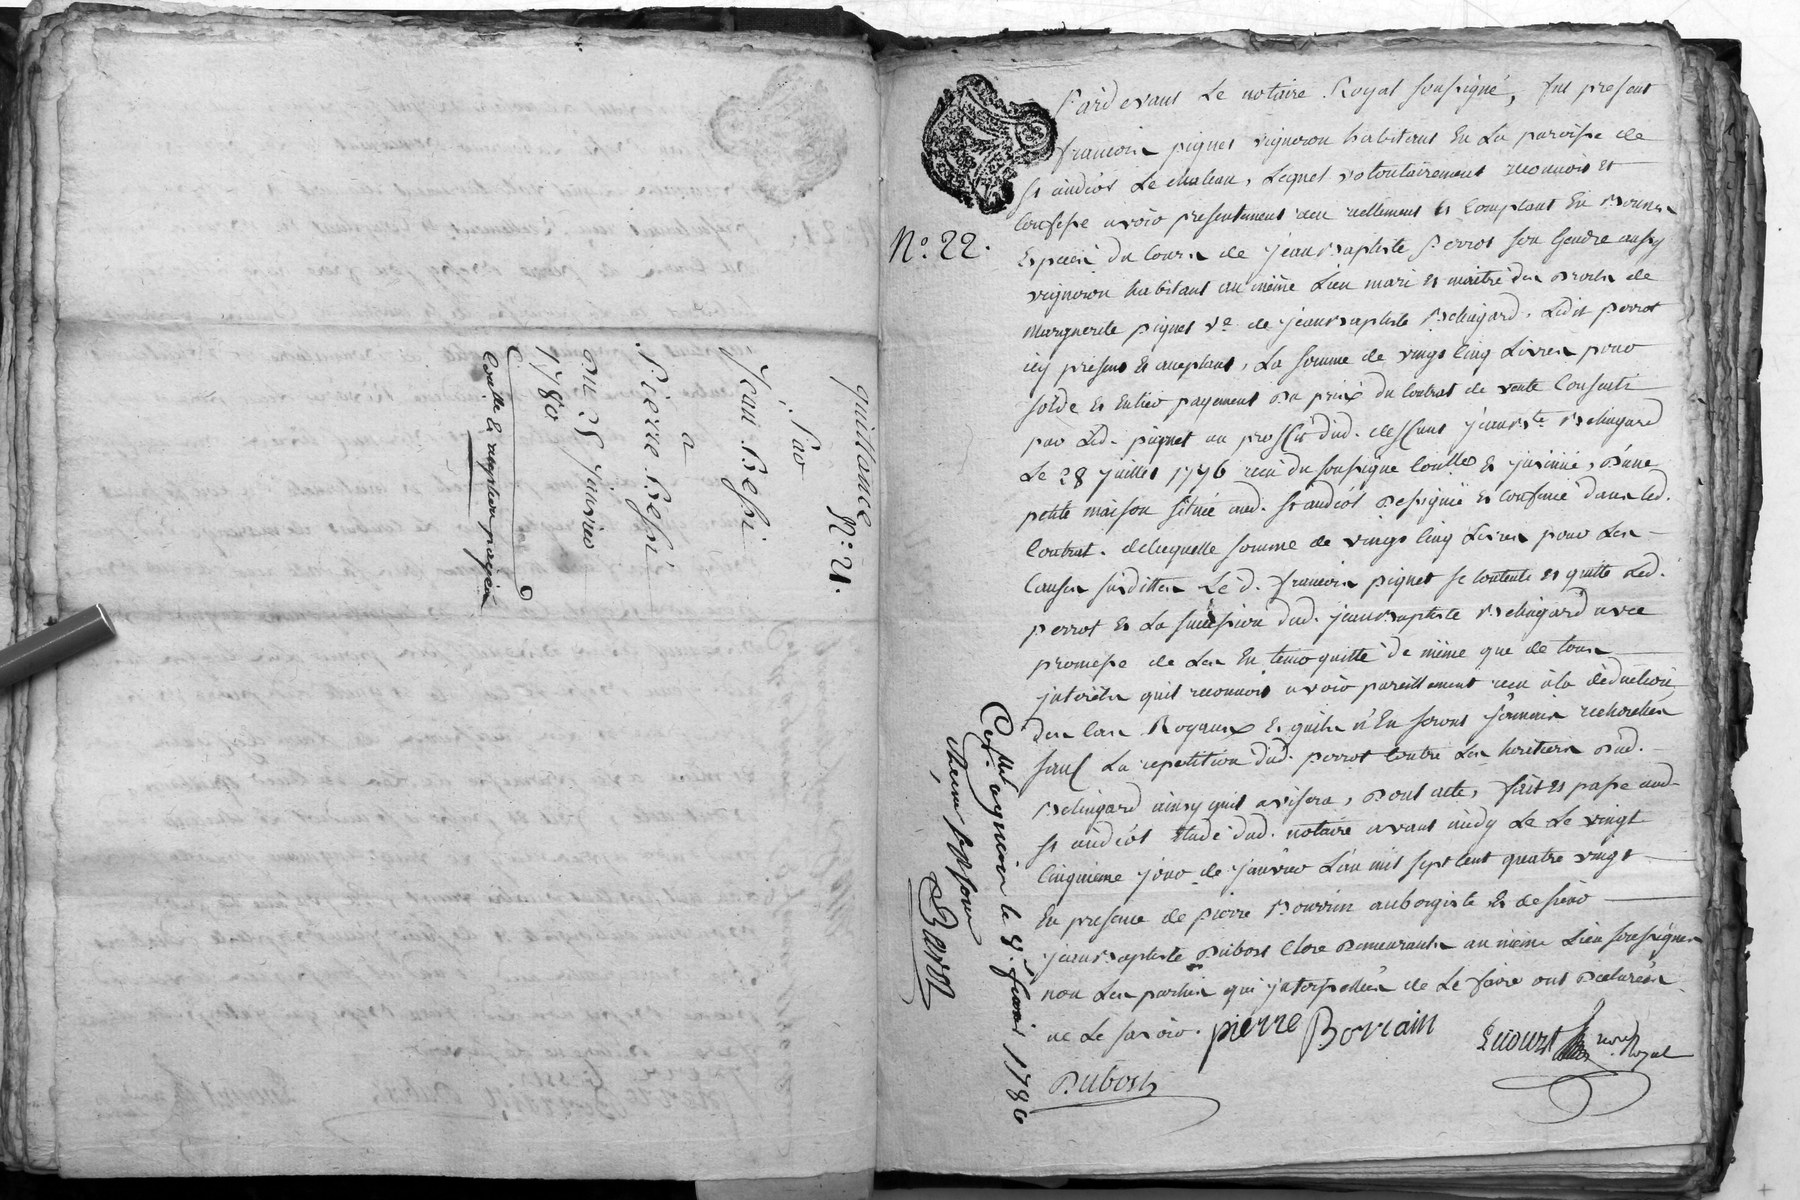 quittance N.° 21.
Par
Jean Bessi
a
Pierre Bessi
du 25 janvier
1780
Con.lle et expedition payées
N.° 22.
Pardevant Le notaire Royal soussigné, fut present
francois piquet vigneron habitant En La paroisse de
st andiol Le chateau, Lequel volontairement reconnoit et
Confesse avoir presentement recu reellement et Comptant En Bonnes
Especes du Cours de jeanBaptiste perrot son Gendre aussy
vigneron habitant au même Lieu mari et maitre des Droits de
Marguerite piquet v.e de jeanBaptiste Belingard, Ledit perrot
icy present et acceptant, La somme de vingt Cinq Livres pour
solde et Entier payement Du prix du Contrat de vente Consenti
par Led. piquet au proffit dud. deffunt jeanB.te Belingard
Le 28 juillet 1776 recu du soussigné Conllé et insinué, D'une
petite maison située aud. st andiol Designée et Confinée dans led.
Contrat. delaquelle somme de vingt Cinq Livres pour Les
Causes susdittes Led. francois piquet se Contente et quitte Led.
perrot et La succession dud. jeanBaptiste Belingard avec
promesse de Les En tenir quitte de même que de tous
interets quil reconnoit avoir pareillement recu à la deduction
des Cas Royaux et quils n'En seront jamais recherchés
sauf La repetition dud. perrot Contre Les heritiers Dud.
Belingard ainsy quil avisera, Dont acte, fait et passé aud.
st andiol Etude dud. notaire avant midy Le Le vingt
Cinquieme jour de janvier L'an mil sept Cent quatre vingt
En presence de pierre Bourrin aubergiste et de sieur
jeanBaptiste Dubost Clerc Demeurants au même Lieu soussignés
non Les parties qui interpellées de Le faire ont Declarées
ne Le savoir. pierre Borrain
Dubost
not. Royal
le 8. fevrier 1780